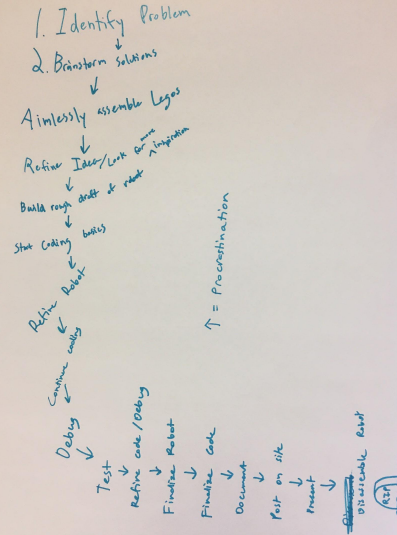 1. Identify Problem
2. Brainstorm Solutions
Aimlessly assemble Legos
Refine Idea/Look for more inspiration
Build rough draft of robot
Start Coding basics
Refine Robot
Continue coding
Debug
Test
Refine code/Debug
Finalize Robot
Finalize Code
Document
Post on site
Present
Disassemble Robot
RIP
↑ = Procrastination